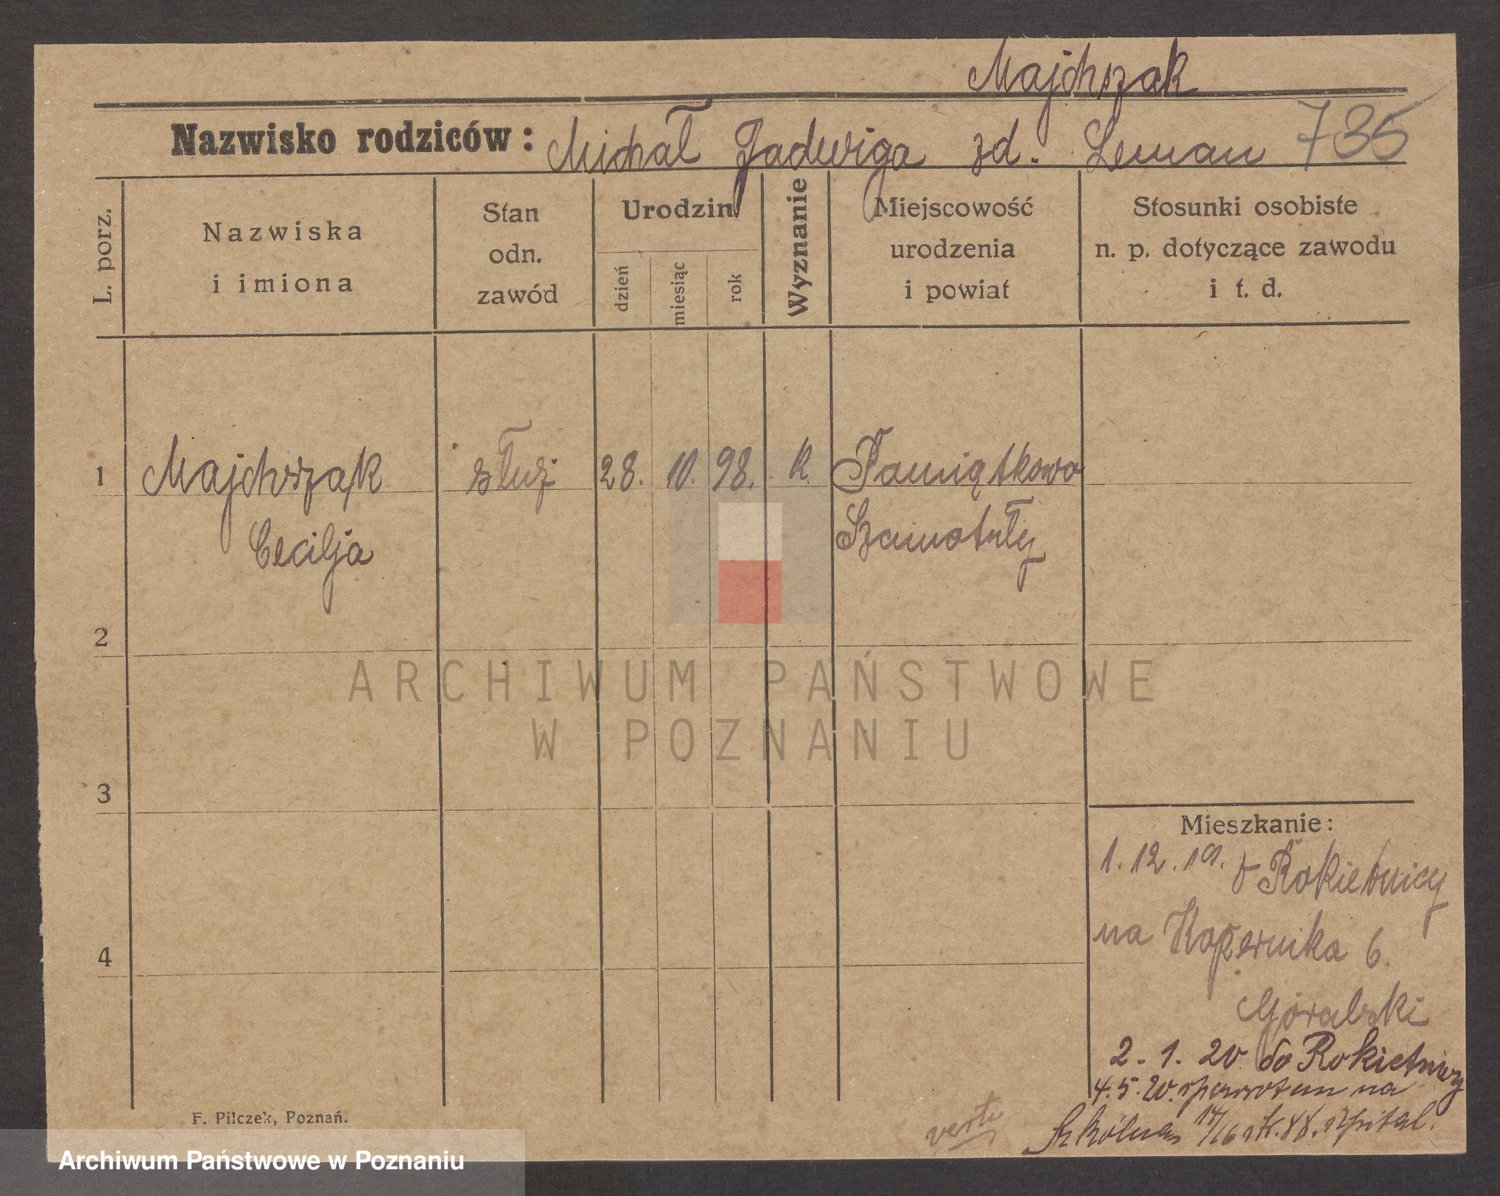 Majchrzak
Nazwisko rodziców: Michał Jadwiga zd. Leman 735
L. porz.
Nazwiska
i imiona
Stan
odn.
zawód
Urodzin
dzień
miesiąc
rok
Wyznanie
Miejscowość
urodzenia
i powiat
Stosunki osobiste
n. p. dotyczące zawodu
i t. d.
1 Majchrzak służ 28. 10. 98. K. Pamiątkowo
Cecilja Szamotuły
2
ARCHIWUM PAŃSTWOWE
W POZNANIU
3
Mieszkanie:
1.12.19. z Rokietnicy
na Kopernika 6.
Góralski
4
2.1.20 do Rokietnicy
4.5.20. spowrotem na
Szkólna 17/16 szpital.
verte
F. Pilczek, Poznań.
Archiwum Państwowe w Poznaniu